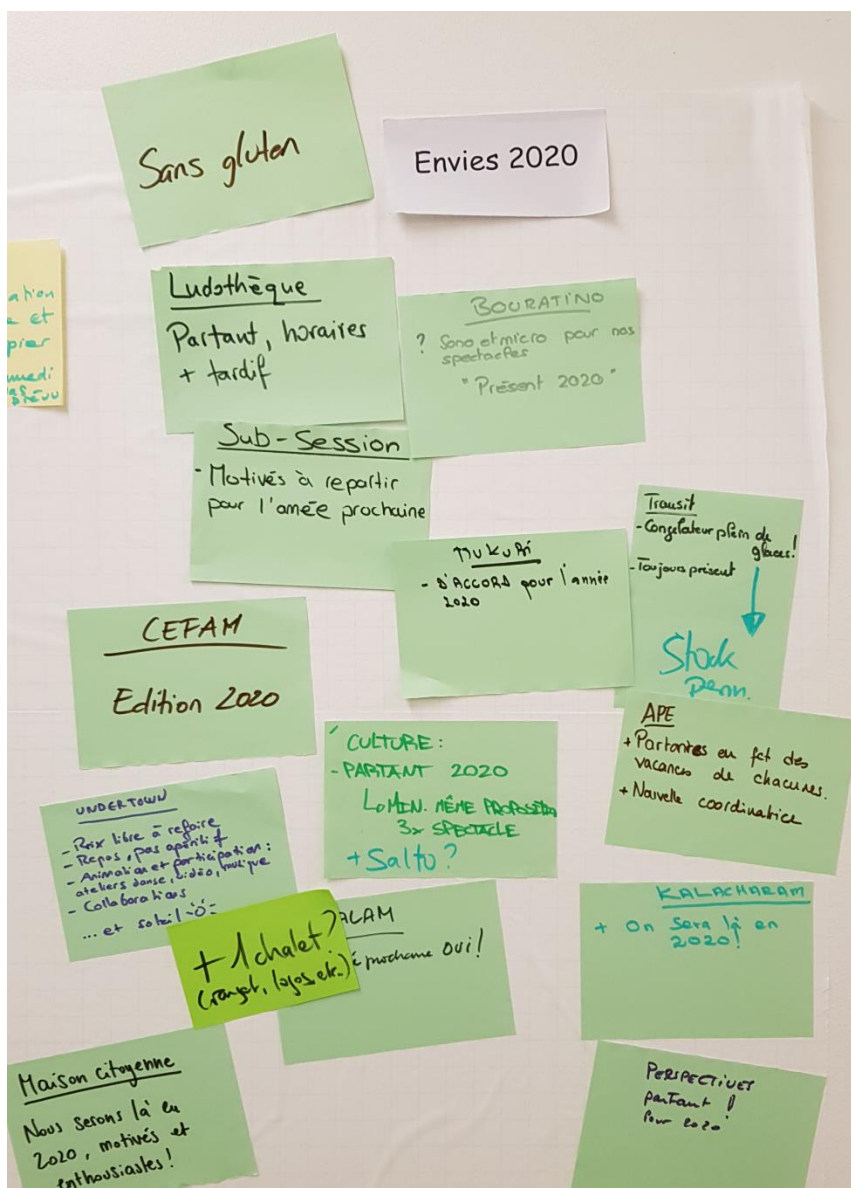 Sans gluten
Envies 2020
ation
e et
pier
medi
prévu
Ludothèque
Partant, horaires
+ tardif
BOURATINO
? Sono et micro pour nos
spectacles
"Présent 2020"
Sub-Session
- Motivés à repartir
pour l'année prochaine
Transit
- Congélateur plein de
glaces!
- Toujours présent
Stock
perm.
- D'ACCORD pour l'année
2020
CEFAM
Edition 2020
CULTURE:
- PARTANT 2020
MIN. MÊME PROPOSITION
3x SPECTACLE
+ Salto?
APE
+ Partantes en fct des
vacances de chacunes.
+ Nouvelle coordinatrice
UNDERTOWN
- Prix libre à refaire
- Repas, pas apéritif
- Animation et participation:
ateliers danse, vidéo, musique
- Collaborations
... et soleil
+ 1 chalet?
(rangt, logos, etc.)
ALAM
é prochaine OUI!
KALACHARAM
+ On sera là en
2020!
Maison citoyenne
Nous serons là en
2020, motivés et
enthousiastes!
PERSPECTIVES
partant!
Pour 2020